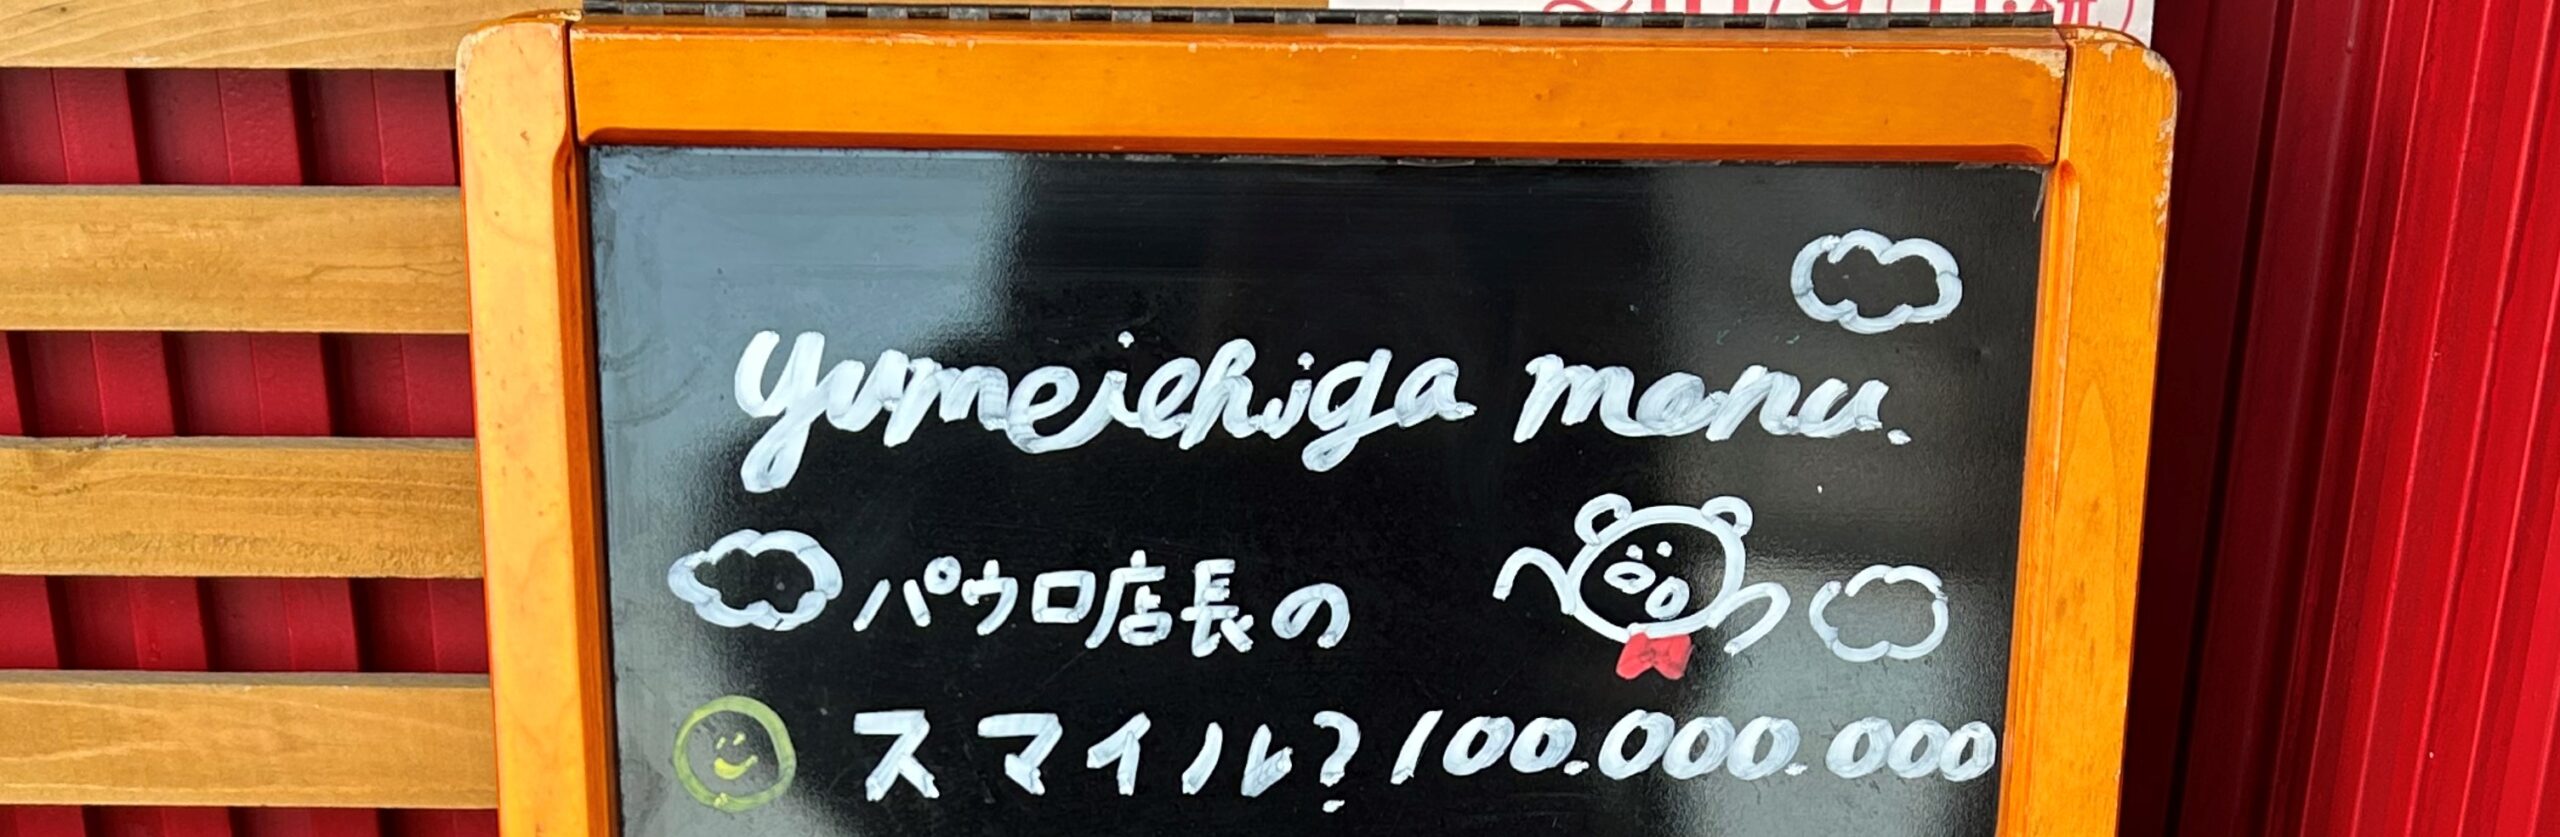 yumeichiga menu.
パウロ店長の
スマイル?100.000.000